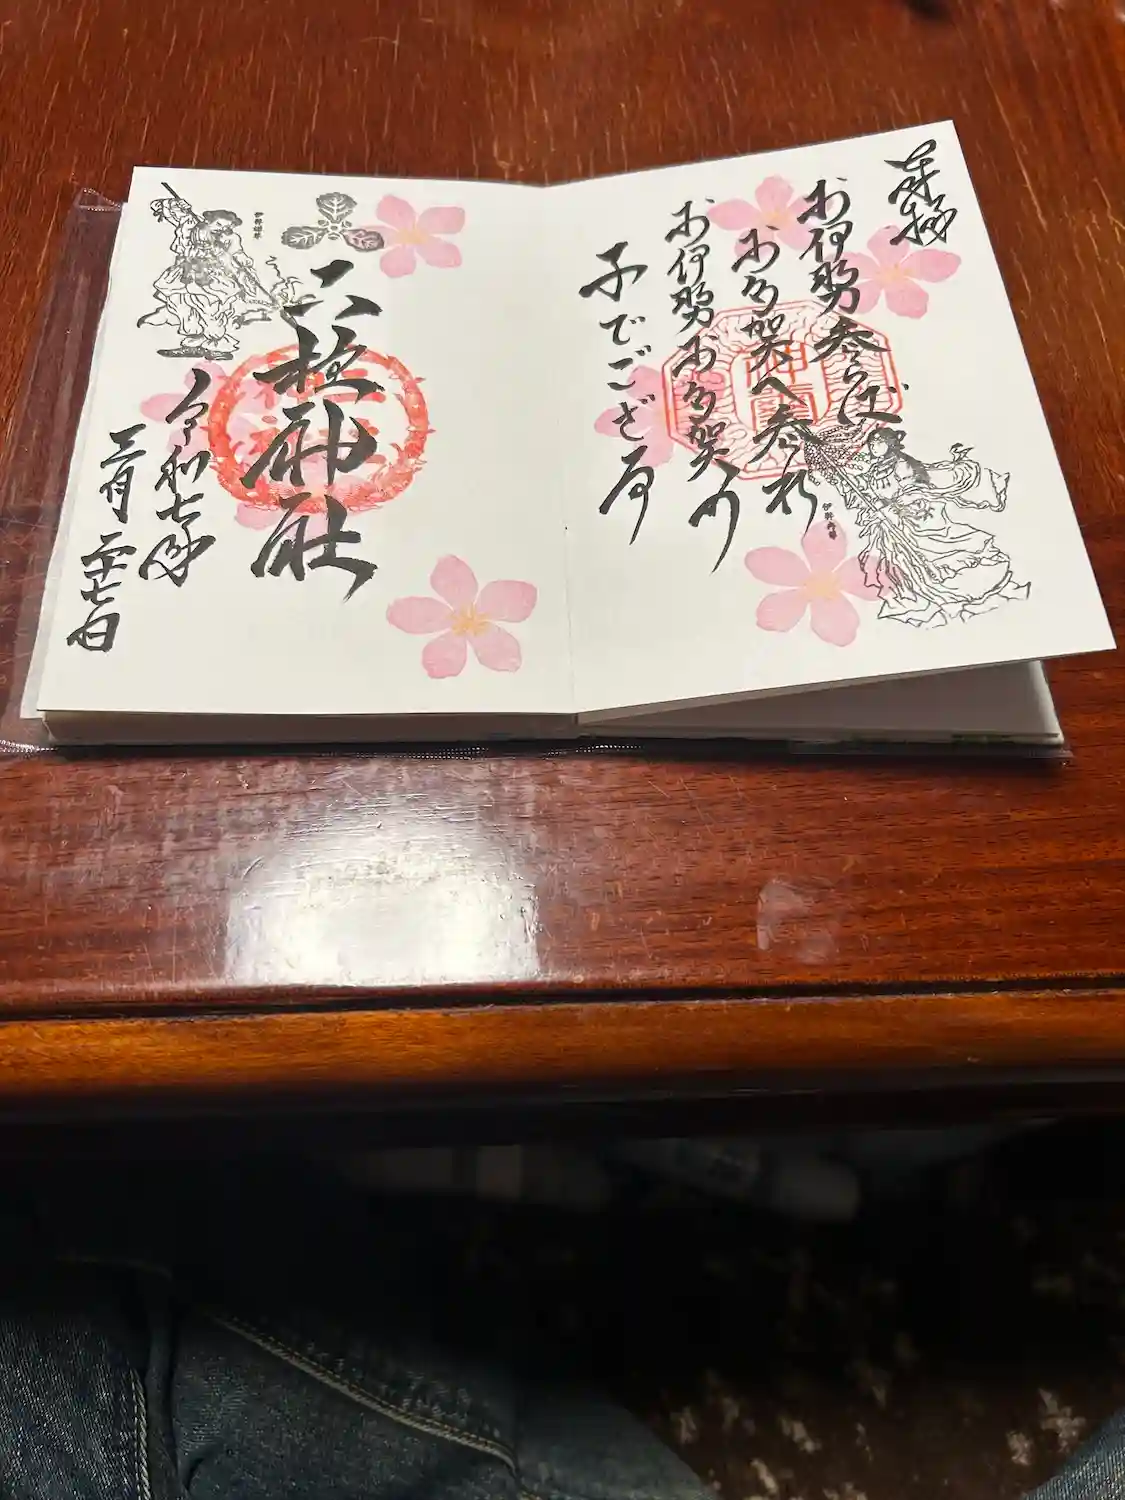 奉拝
お伊勢参らば
お多賀へ参れ
お伊勢お多賀の
子でござる
伊弉冉尊
二柱神社
伊弉諾尊
令和七年
三月二十七日